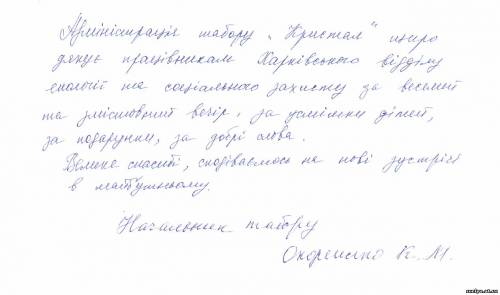 Адміністрація табору „Кристал" щиро
дякує працівникам Харківського відділу
екології та соціального захисту за веселий
та змістовний вечір, за усмішки дітей,
за подарунки, за добрі слова.
Велике спасибі, сподіваємось на нові зустрічі
в майбутньому.
Начальник табору
К. М.